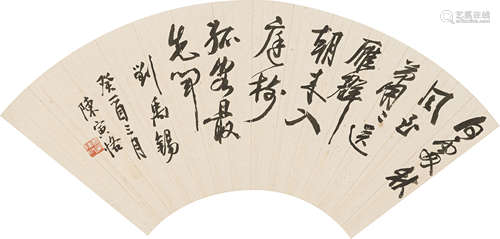 何處秋
風至
蕭〻送
雁群
朝来入
庭樹
孤客最
先聞
劉禹錫
癸酉三月
陳寅恪